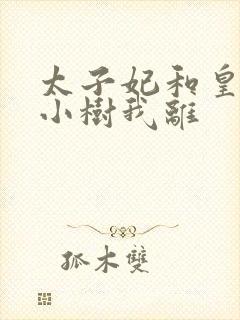 太子妃和皇
小樹我離
孤木雙